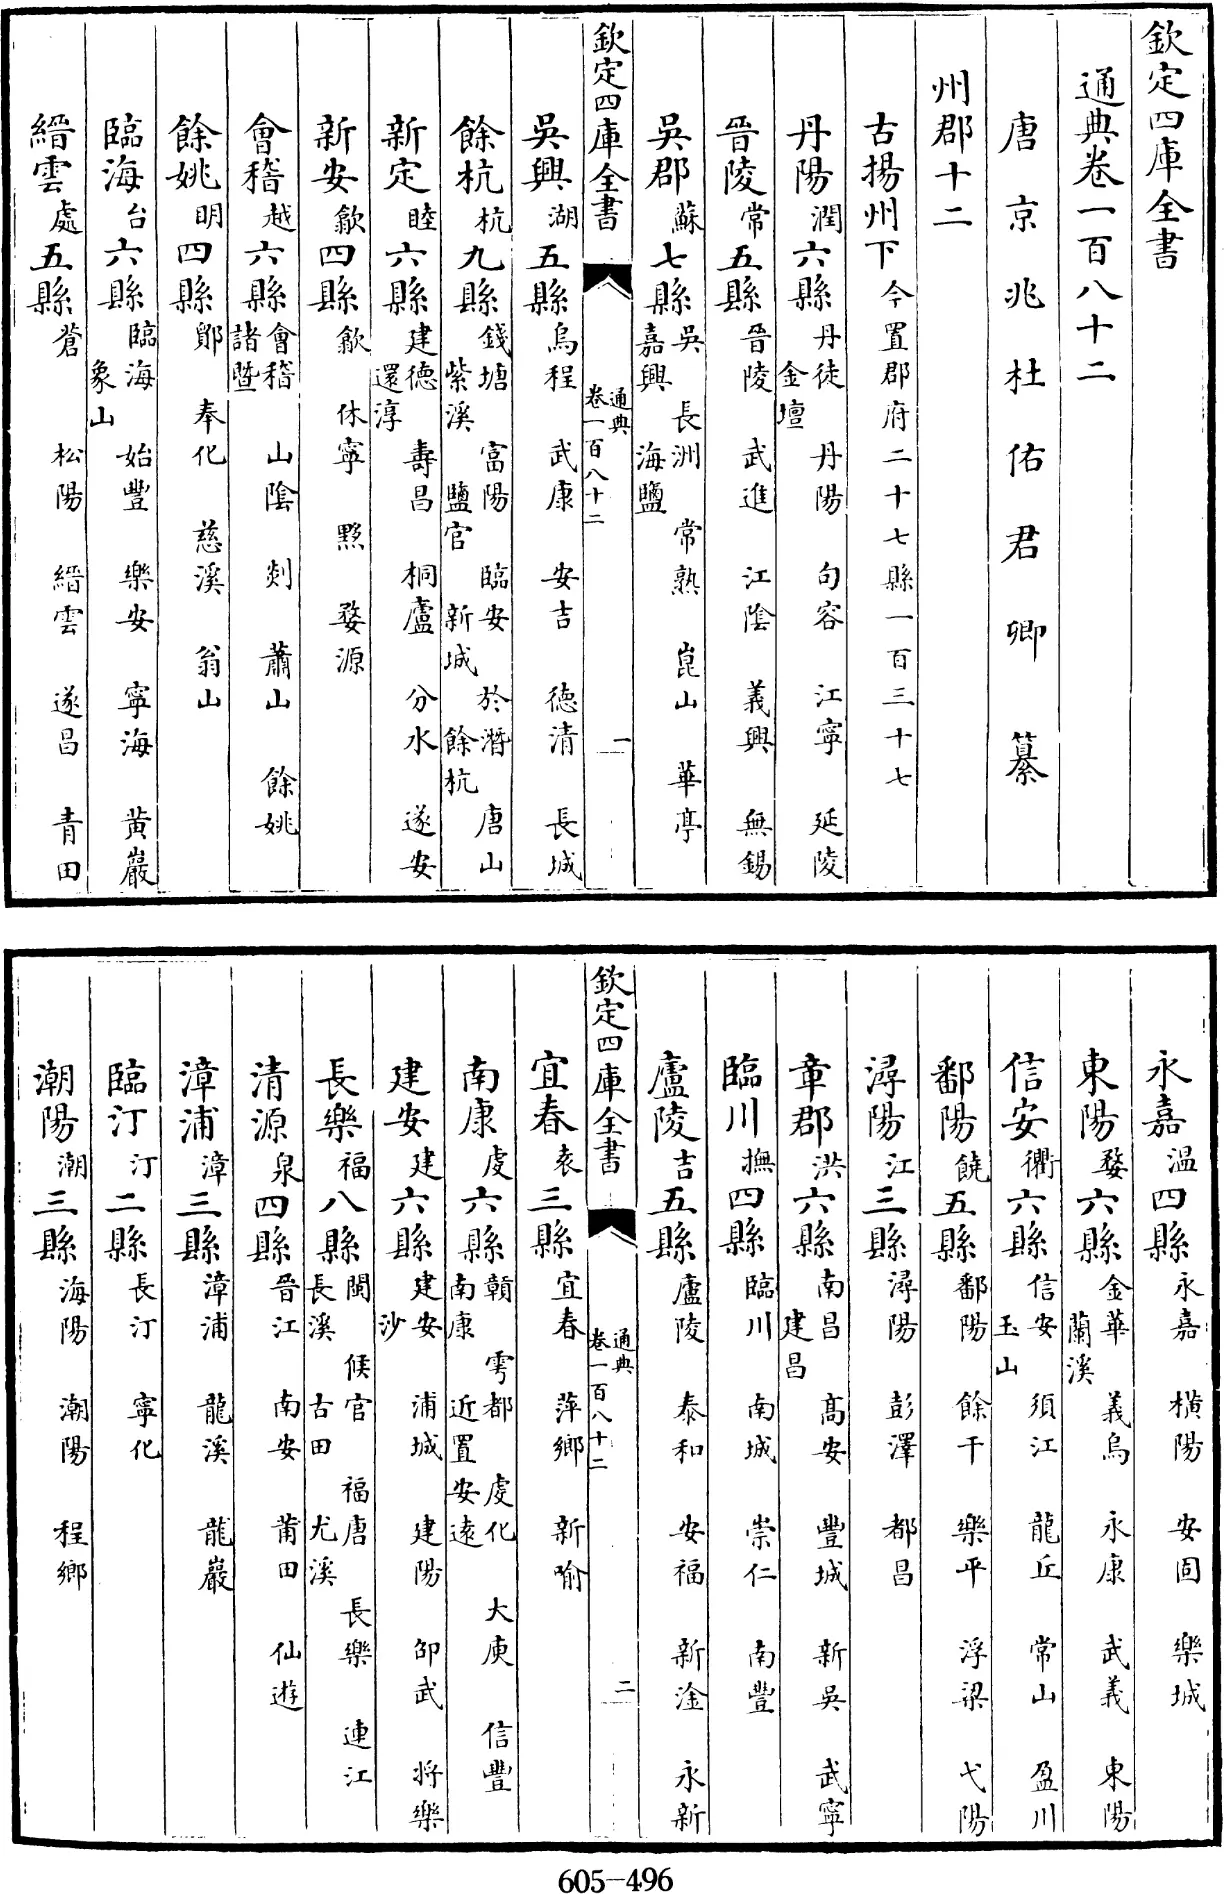 欽定四庫全書
通典卷一百八十二
唐京兆杜佑君卿纂
州郡十二
古揚州下今置郡府二十七縣一百三十七
丹陽潤六縣丹徒 丹陽 句容 江寧 延陵 金壇
晉陵常五縣晉陵 武進 江陰 義興 無錫
吳郡蘇七縣吳 長洲 常熟 崑山 華亭 嘉興 海鹽
欽定四庫全書 通典卷一百八十二 一
吳興湖五縣烏程 武康 安吉 德清 長城
餘杭杭九縣錢塘 富陽 臨安 於潛 唐山 紫溪 鹽官 新城 餘杭
新定睦六縣建德 壽昌 桐廬 分水 遂安 還淳
新安歙四縣歙 休寧 黟 婺源
會稽越六縣會稽 山陰 剡 蕭山 餘姚 諸暨
餘姚明四縣鄮 奉化 慈溪 翁山
臨海台六縣臨海 始豐 樂安 寧海 黃巖 象山
縉雲處五縣蒼 松陽 縉雲 遂昌 青田
永嘉溫四縣永嘉 橫陽 安固 樂城
東陽婺六縣金華 義烏 永康 武義 東陽 蘭溪
信安衢六縣信安 須江 龍丘 常山 盈川 玉山
鄱陽饒五縣鄱陽 餘干 樂平 浮梁 弋陽
潯陽江三縣潯陽 彭澤 都昌
章郡洪六縣南昌 高安 豐城 新吳 武寧 建昌
臨川撫四縣臨川 南城 崇仁 南豐
廬陵吉五縣廬陵 泰和 安福 新淦 永新
欽定四庫全書 通典卷一百八十二 二
宜春袁三縣宜春 萍鄉 新喻
南康虔六縣贛 雩都 虔化 大庾 信豐 南康 近置安遠
建安建六縣建安 浦城 建陽 邵武 將樂 沙
長樂福八縣閩 候官 福唐 長樂 連江 長溪 古田 尤溪
清源泉四縣晉江 南安 莆田 仙遊
漳浦漳三縣漳浦 龍溪 龍巖
臨汀汀二縣長汀 寧化
潮陽潮三縣海陽 潮陽 程鄉
605-496